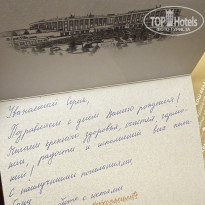 TopHotels
ФОТО ТУРИСТА
Уважаемый
Поздравляем с днём Вашего рождения!
Желаем крепкого здоровья, счастья, гармо-
нии, радости и исполнения
ний!
С наилучшими пожеланиями,